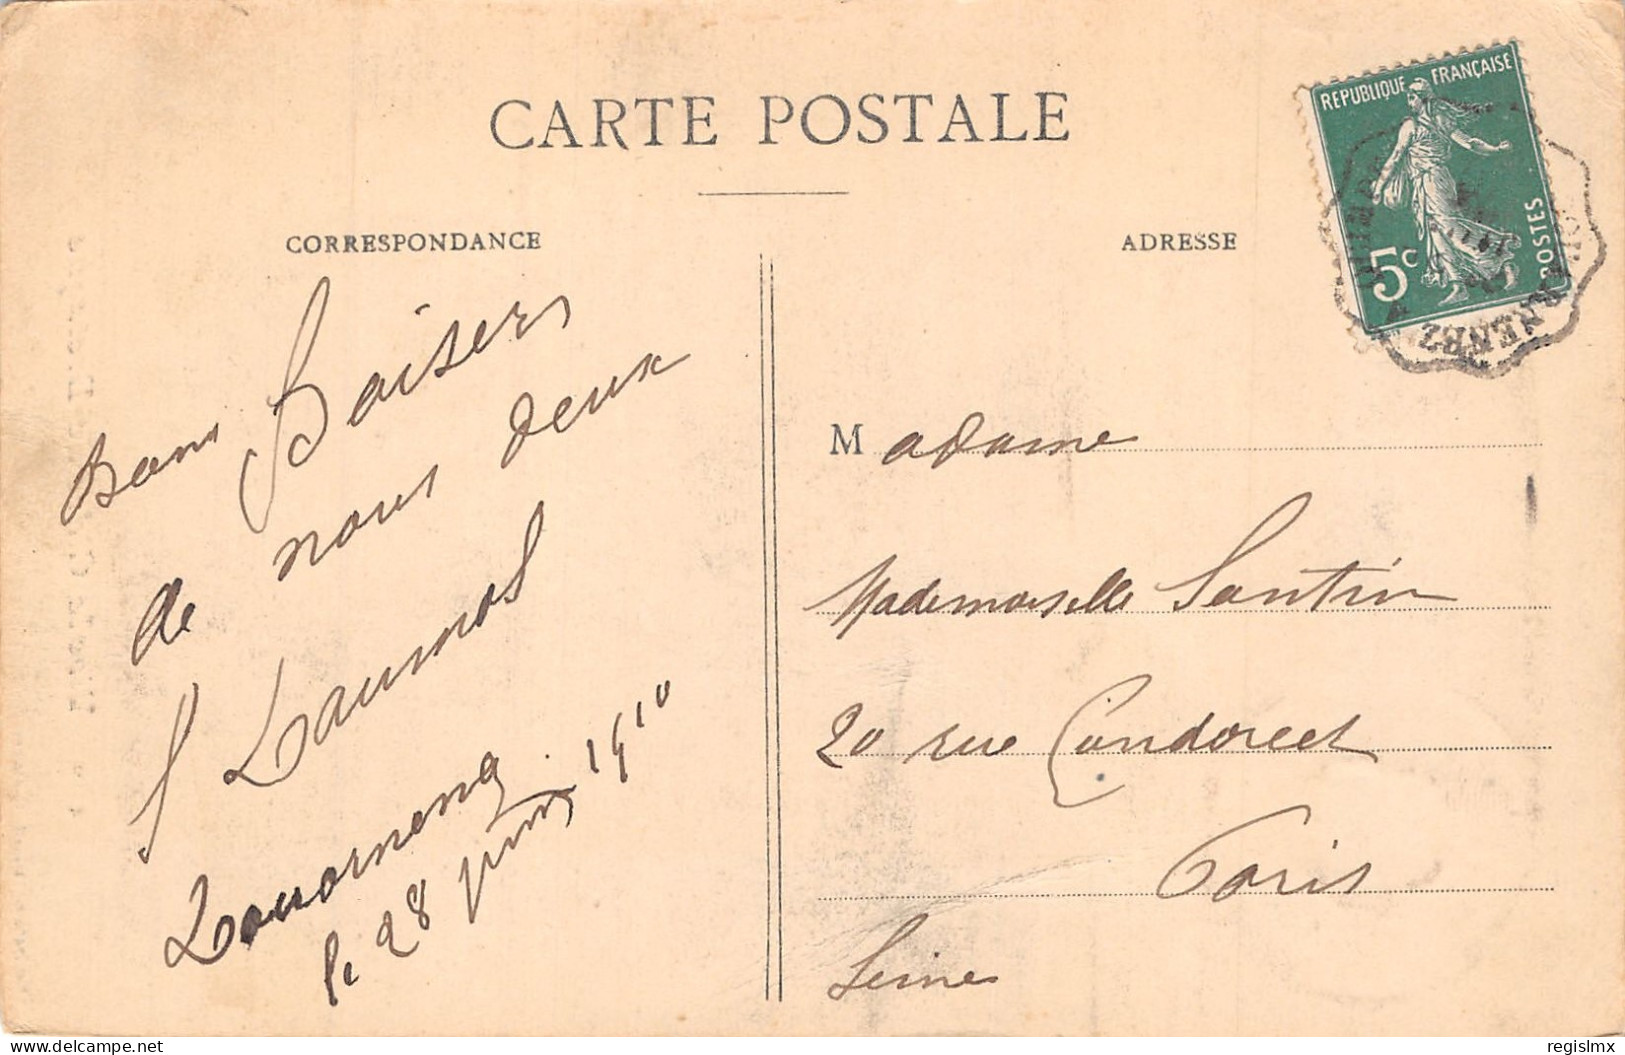 CARTE POSTALE
CORRESPONDANCE
Bons Baisers
de nous deux
Lourmeng
le 28 juin 1910
ADRESSE
REPUBLIQUE FRANÇAISE
POSTES
5c
Madame
Mademoiselle Santin
20 rue Condorcet
Paris
Seine
www.delcampe.net
regislmx